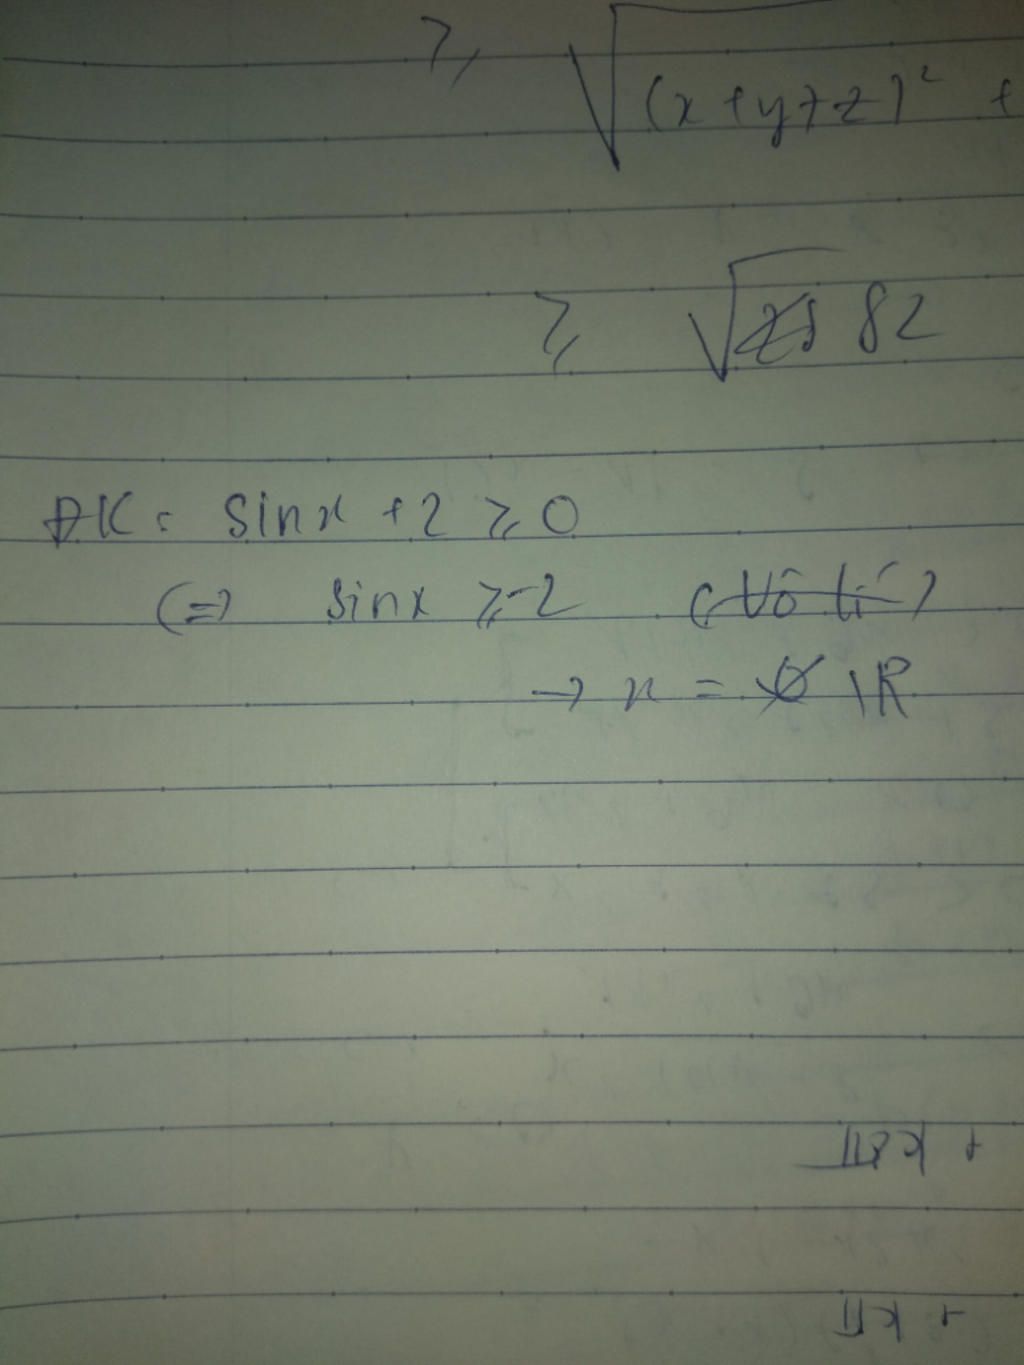 ≥ √(x+y+z)² +
≥ √82
ĐK: sinx +2 ≥ 0
(=) sinx ≥ -2 (Vô lí)
→ x = ∅ \R
+ k2π
+ kπ